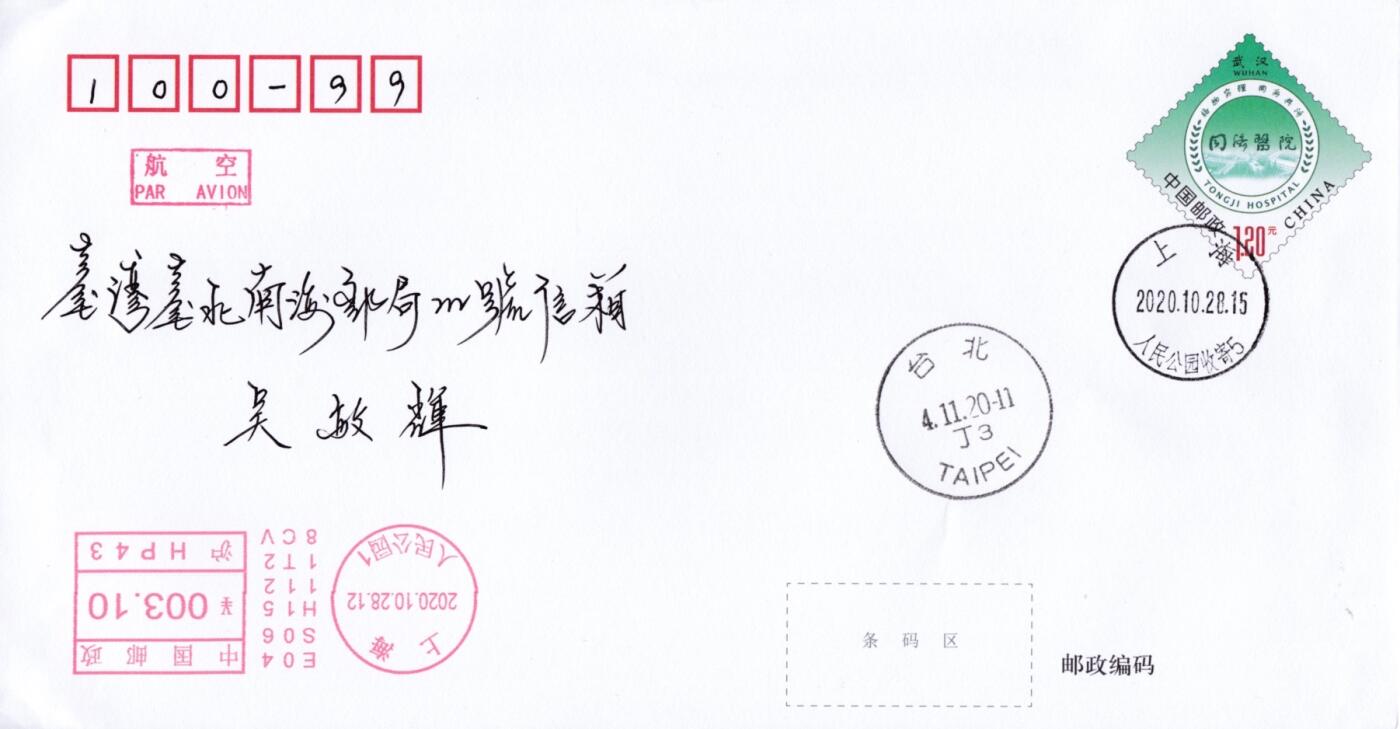 100-99
航 空
PAR AVION
臺灣臺北南海郵局號信箱
吳敏輝
武汉
WUHAN
格物穷理 同舟共济
同济醫院
TONGJI HOSPITAL
中国邮政 CHINA
1.20元
上海
2020.10.28.15
人民公园收寄5
台北
4.11.20-11
J3
TAIPEI
上海
2020.10.28.12
人民公园1
E04
S06
H15
112
1T2
8CV
中国邮政
¥ 003.10
沪 HP43
条码区
邮政编码